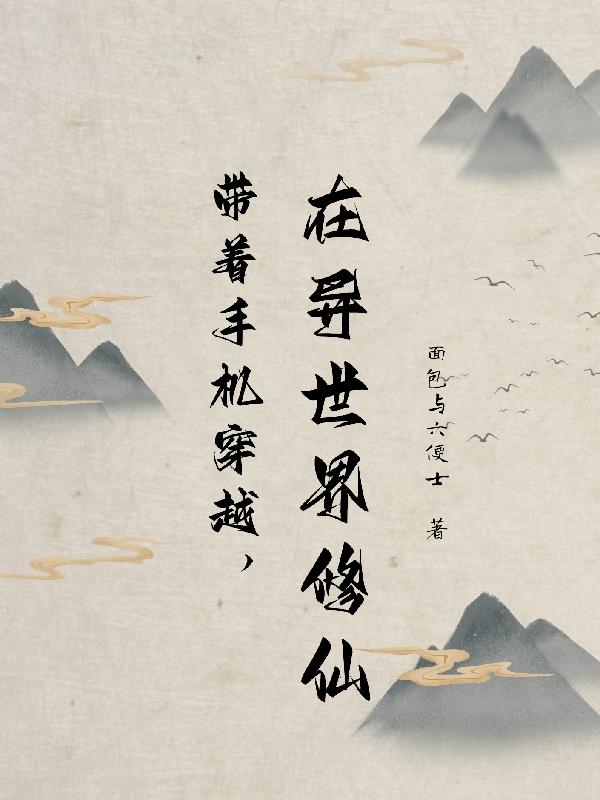 带着手机穿越，
在异世界修仙
面包与六便士 著